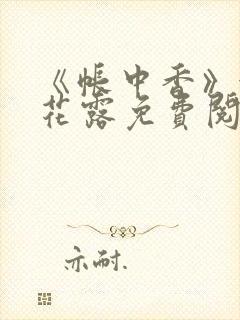 《帐中香》
花露免费阅
亦耐.